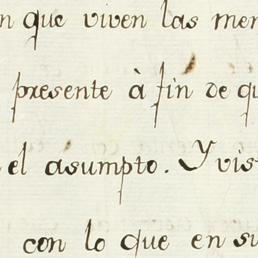 n que viven las men
presente à fin de qu
el asumpto. Y vis
con lo que en su